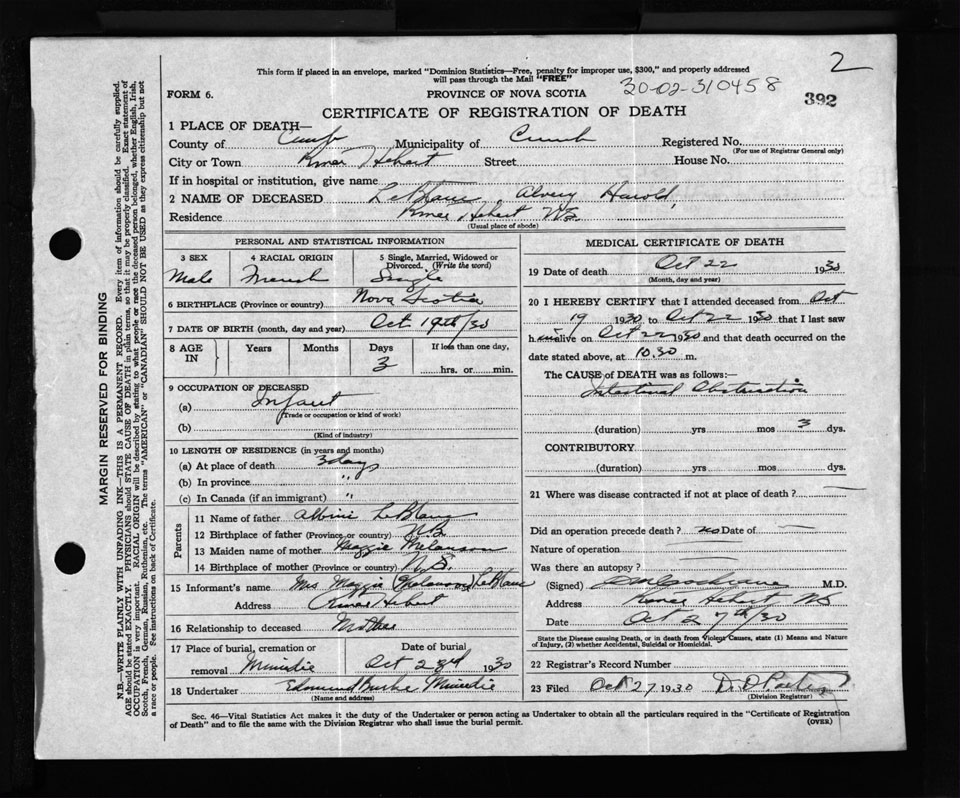 2
This form if placed in an envelope, marked "Dominion Statistics—Free, penalty for improper use, $300," and properly addressed
will pass through the Mail "FREE"
30-02-310458
FORM 6. PROVINCE OF NOVA SCOTIA 392
CERTIFICATE OF REGISTRATION OF DEATH
1 PLACE OF DEATH—
County of Cumb Municipality of Cumb Registered No.
(For use of Registrar General only)
City or Town River Hebert Street House No.
If in hospital or institution, give name
2 NAME OF DECEASED LeBlanc Alvery Harold,
Residence River Hebert NS.
(Usual place of abode)
PERSONAL AND STATISTICAL INFORMATION
3 SEX 4 RACIAL ORIGIN 5 Single, Married, Widowed or
Divorced. (Write the word)
Male French Single
6 BIRTHPLACE (Province or country) Nova Scotia
7 DATE OF BIRTH (month, day and year) Oct 19th/30
8 AGE IN Years Months Days If less than one day,
3 hrs. or min.
9 OCCUPATION OF DECEASED
(a) Infant
(Trade or occupation or kind of work)
(b)
(Kind of industry)
10 LENGTH OF RESIDENCE (in years and months)
(a) At place of death 3 days
(b) In province "
(c) In Canada (if an immigrant) "
Parents
11 Name of father Albini LeBlanc
12 Birthplace of father (Province or country) N.B.
13 Maiden name of mother Maggie Melanson
14 Birthplace of mother (Province or country) N.S.
15 Informant's name Mrs Maggie (Melanson) LeBlanc
Address River Hebert
16 Relationship to deceased Mother
17 Place of burial, cremation or Date of burial,
removal Minudie Oct 23rd 1930
18 Undertaker Edmund Burke Minudie
(Name and address)
MEDICAL CERTIFICATE OF DEATH
19 Date of death Oct 22 1930
(Month, day and year)
20 I HEREBY CERTIFY that I attended deceased from Oct
19 1930 to Oct 22 1930 that I last saw
h im alive on Oct 22 1930 and that death occurred on the
date stated above, at 10.30 m.
The CAUSE of DEATH was as follows:—
Intestinal Obstruction
(duration) yrs mos 3 dys.
CONTRIBUTORY
(duration) yrs mos dys.
21 Where was disease contracted if not at place of death?
Did an operation precede death? no Date of
Nature of operation
Was there an autopsy?
(Signed) M.D.
Address River Hebert NS
Date Oct 27th/30
State the Disease causing Death, or in death from Violent Causes, state (1) Means and Nature
of Injury, (2) whether Accidental, Suicidal or Homicidal.
22 Registrar's Record Number
23 Filed Oct 27 1930
(Division Registrar)
Sec. 46—Vital Statistics Act makes it the duty of the Undertaker or person acting as Undertaker to obtain all the particulars required in the "Certificate of Registration
of Death" and to file the same with the Division Registrar who shall issue the burial permit. (OVER)
MARGIN RESERVED FOR BINDING
N.B.—WRITE PLAINLY WITH UNFADING INK—THIS IS A PERMANENT RECORD. Every item of information should be carefully supplied.
AGE should be stated EXACTLY. PHYSICIANS should STATE CAUSE OF DEATH in plain terms, so that it may be properly classified. Exact statement of
OCCUPATION is very important. RACIAL ORIGIN will be described by stating to what people or race the deceased person belonged, whether English, Irish,
Scotch, French, German, Russian, Ruthenian, etc. The terms "AMERICAN" or "CANADIAN" SHOULD NOT BE USED as they express citizenship but not
a race or people. See instructions on back of Certificate.